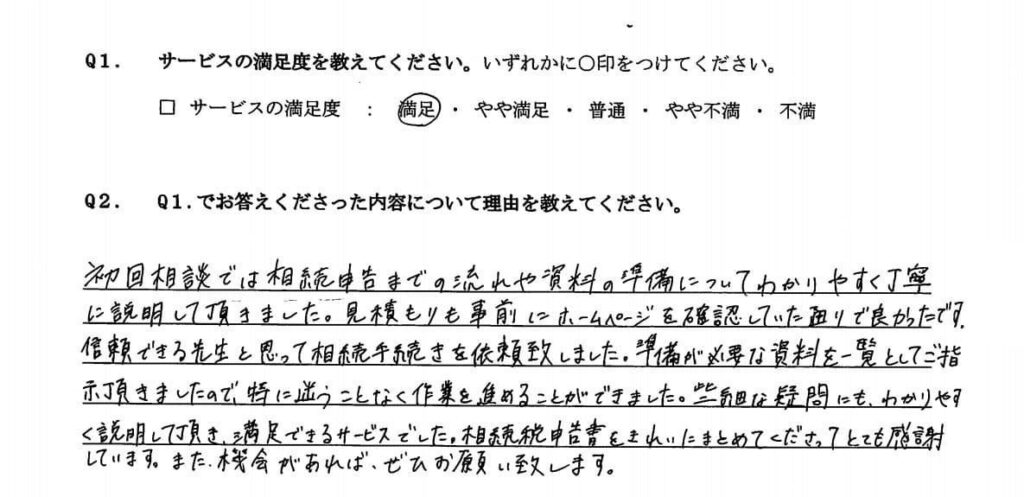 Q1. サービスの満足度を教えてください。いずれかに○印をつけてください。
□ サービスの満足度 : 満足 ・ やや満足 ・ 普通 ・ やや不満 ・ 不満
Q2. Q1.でお答えくださった内容について理由を教えてください。
初回相談では相続申告までの流れや資料の準備についてわかりやすく丁寧
に説明して頂きました。見積もりも事前にホームページを確認していた通りで良かったです。
信頼できる先生と思って相続手続きを依頼致しました。準備が必要な資料を一覧としてご指
示頂きましたので、特に迷うことなく作業を進めることができました。些細な疑問にも、わかりやす
く説明して頂き、満足できるサービスでした。相続税申告書をきれいにまとめてくださってとても感謝
しています。また、機会があれば、ぜひお願い致します。